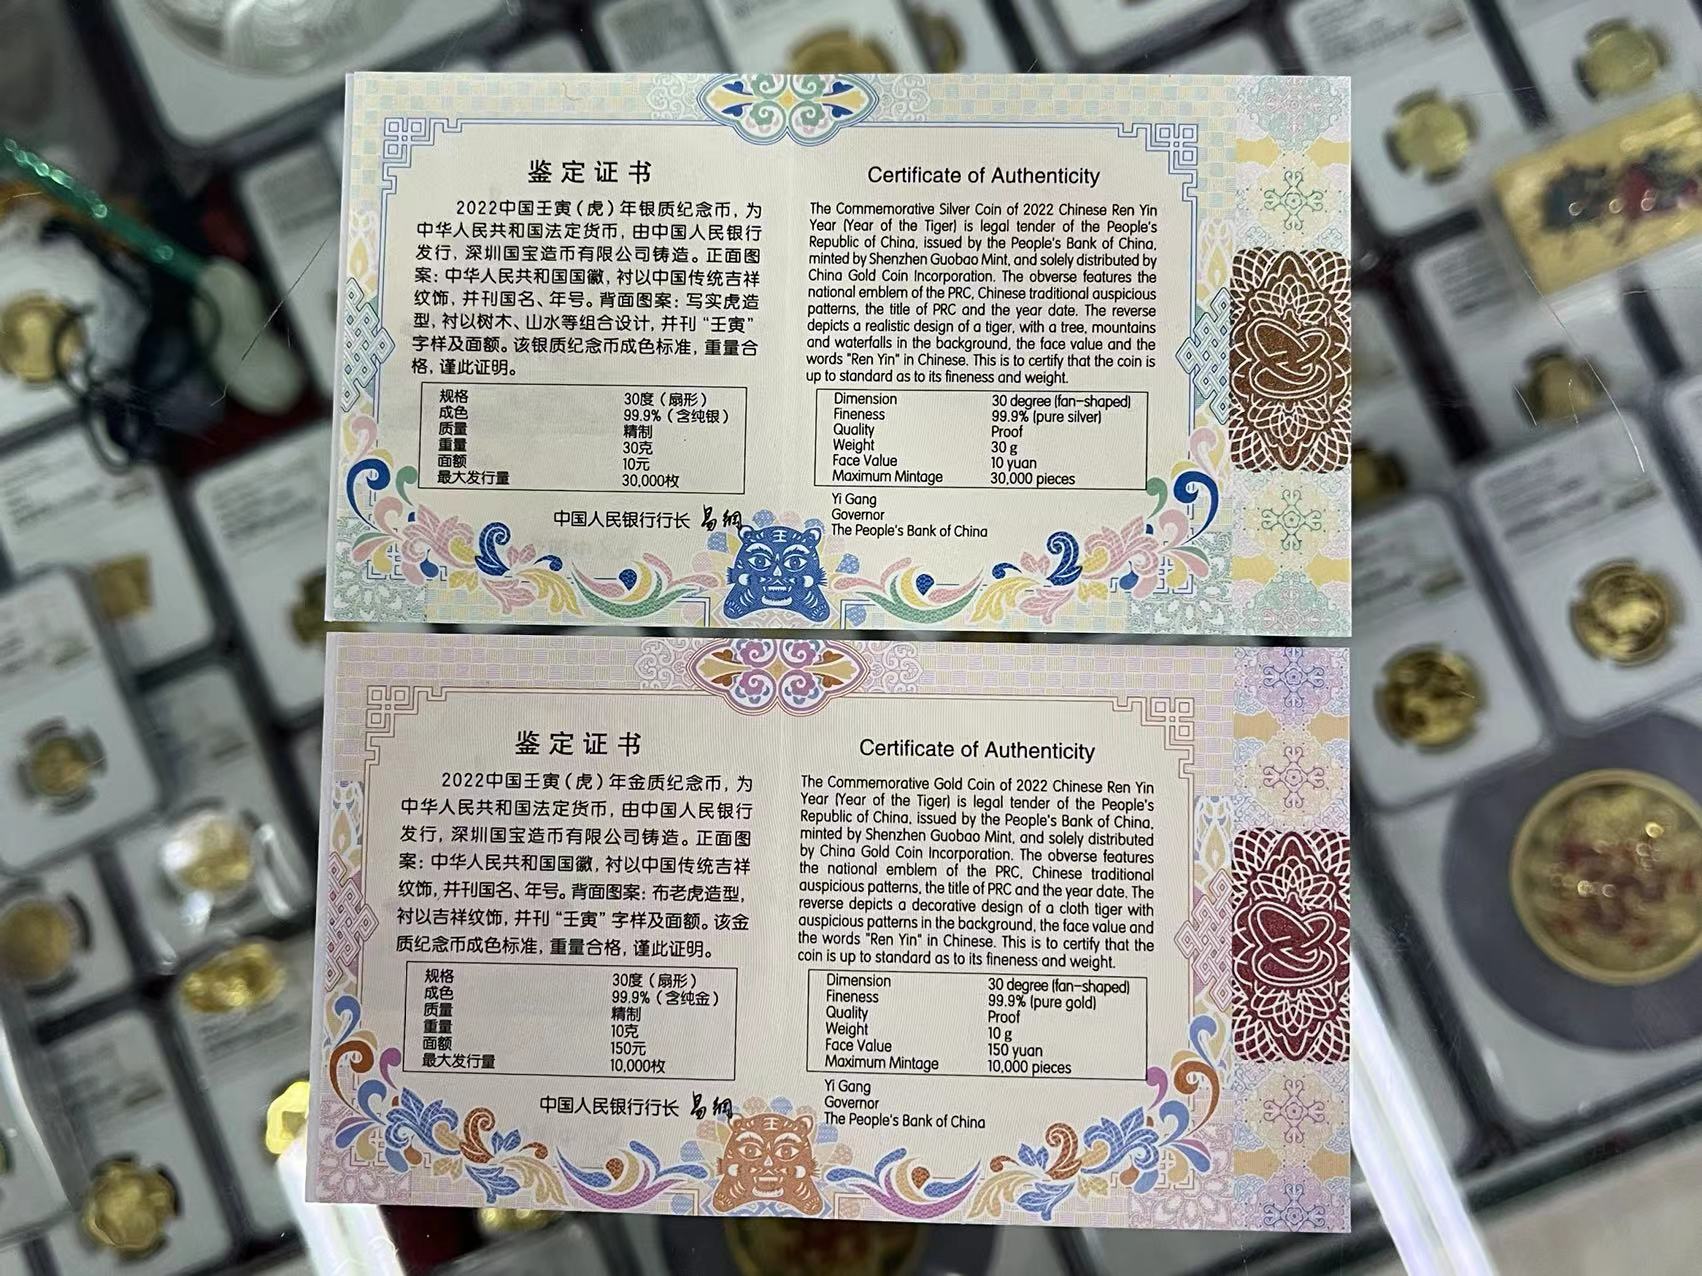 鉴定证书
2022中国壬寅（虎）年银质纪念币，为
中华人民共和国法定货币，由中国人民银行
发行，深圳国宝造币有限公司铸造。正面图
案：中华人民共和国国徽，衬以中国传统吉祥
纹饰，并刊国名、年号。背面图案：写实虎造
型，衬以树木、山水等组合设计，并刊“壬寅”
字样及面额。该银质纪念币成色标准，重量合
格，谨此证明。
规格 30度（扇形）
成色 99.9%（含纯银）
质量 精制
重量 30克
面额 10元
最大发行量 30,000枚
中国人民银行行长 易纲
Certificate of Authenticity
The Commemorative Silver Coin of 2022 Chinese Ren Yin
Year (Year of the Tiger) is legal tender of the People's
Republic of China, issued by the People's Bank of China,
minted by Shenzhen Guobao Mint, and solely distributed by
China Gold Coin Incorporation. The obverse features the
national emblem of the PRC, Chinese traditional auspicious
patterns, the title of PRC and the year date. The reverse
depicts a realistic design of a tiger, with a tree, mountains
and waterfalls in the background, the face value and the
words "Ren Yin" in Chinese. This is to certify that the coin is
up to standard as to its fineness and weight.
Dimension 30 degree (fan-shaped)
Fineness 99.9% (pure silver)
Quality Proof
Weight 30 g
Face Value 10 yuan
Maximum Mintage 30,000 pieces
Yi Gang
Governor
The People's Bank of China
王
鉴定证书
2022中国壬寅（虎）年金质纪念币，为
中华人民共和国法定货币，由中国人民银行
发行，深圳国宝造币有限公司铸造。正面图
案：中华人民共和国国徽，衬以中国传统吉祥
纹饰，并刊国名、年号。背面图案：布老虎造型，
衬以吉祥纹饰，并刊“壬寅”字样及面额。该金
质纪念币成色标准，重量合格，谨此证明。
规格 30度（扇形）
成色 99.9%（含纯金）
质量 精制
重量 10克
面额 150元
最大发行量 10,000枚
中国人民银行行长 易纲
Certificate of Authenticity
The Commemorative Gold Coin of 2022 Chinese Ren Yin
Year (Year of the Tiger) is legal tender of the People's
Republic of China, issued by the People's Bank of China,
minted by Shenzhen Guobao Mint, and solely distributed
by China Gold Coin Incorporation. The obverse features
the national emblem of the PRC, Chinese traditional
auspicious patterns, the title of PRC and the year date. The
reverse depicts a decorative design of a cloth tiger with
auspicious patterns in the background, the face value and
the words "Ren Yin" in Chinese. This is to certify that the
coin is up to standard as to its fineness and weight.
Dimension 30 degree (fan-shaped)
Fineness 99.9% (pure gold)
Quality Proof
Weight 10 g
Face Value 150 yuan
Maximum Mintage 10,000 pieces
Yi Gang
Governor
The People's Bank of China
王